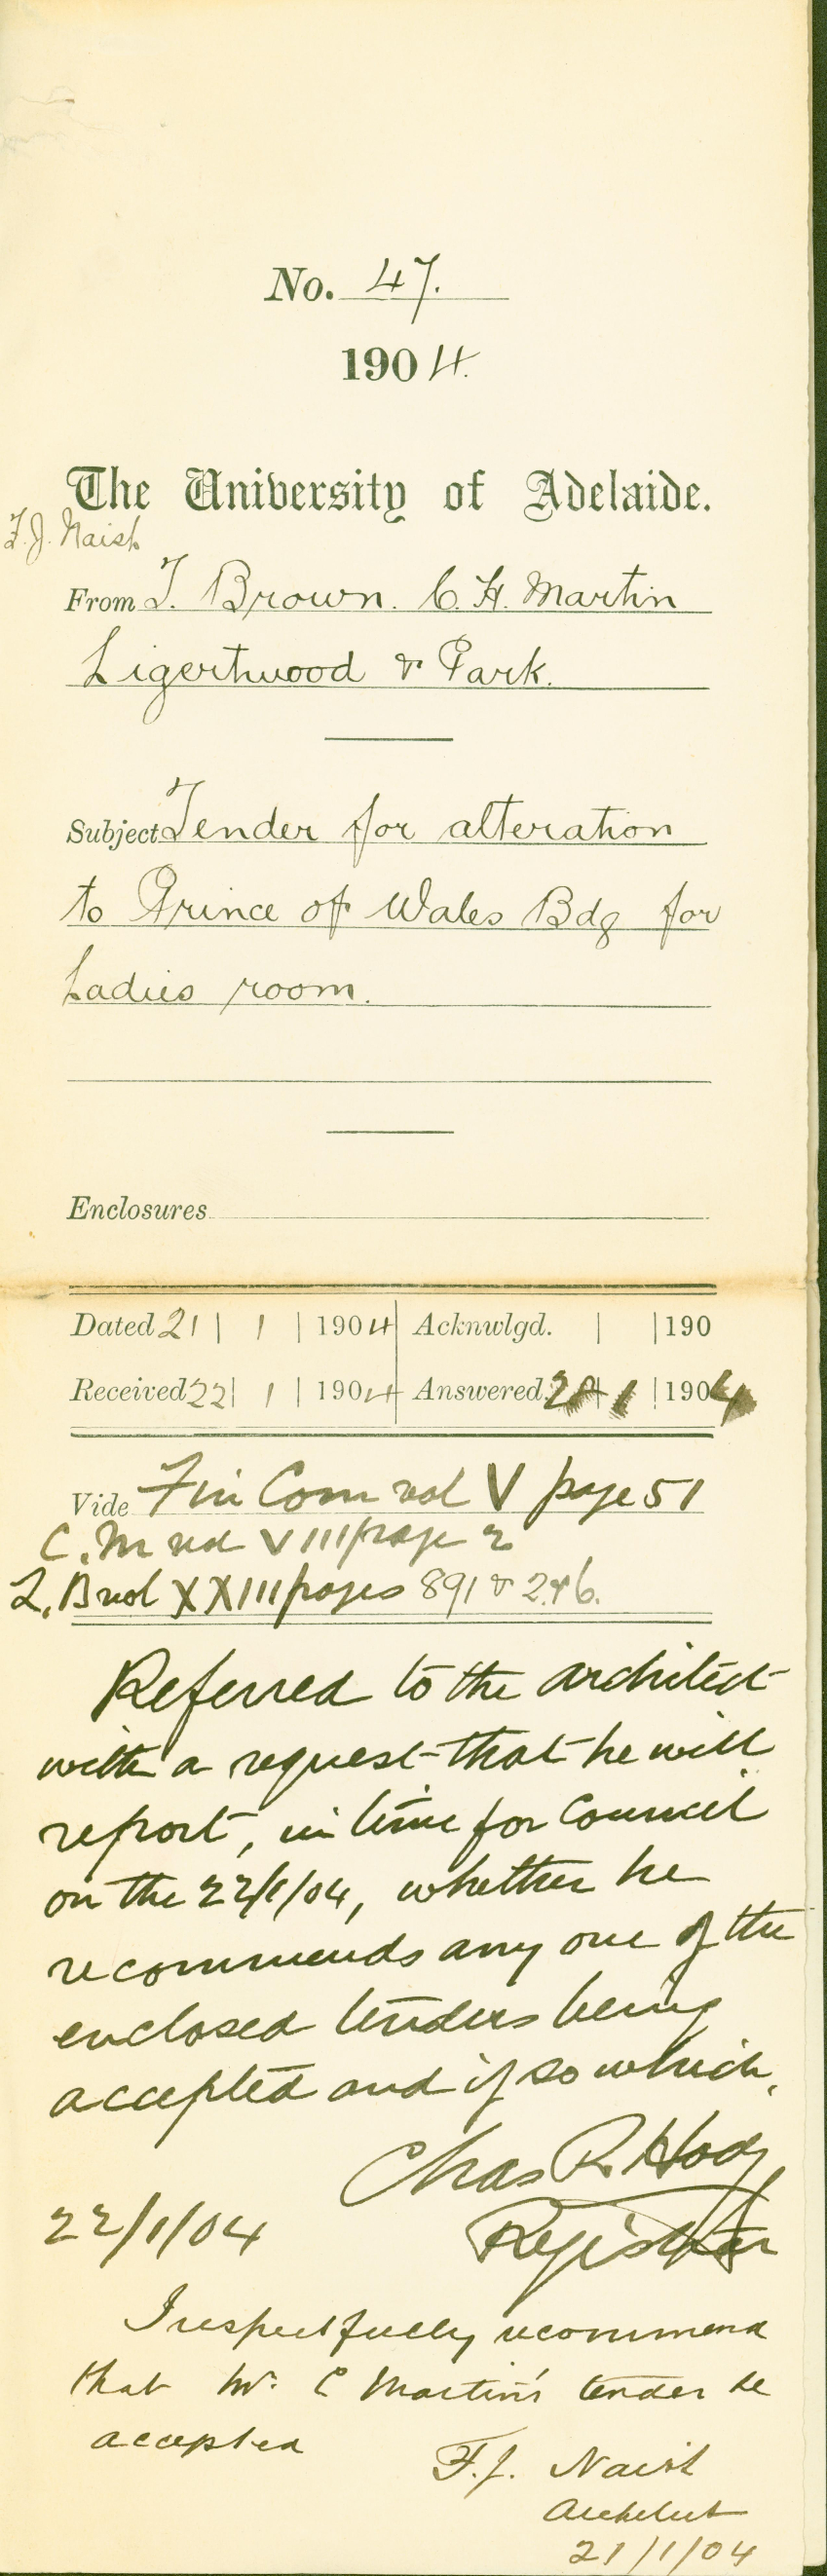 No. 47.
1904.
The University of Adelaide.
F.J. Naish
From T. Brown. C. H. Martin
Ligertwood & Park.
Subject Tender for alteration
to Prince of Wales Bdg for
Ladies room.
Enclosures
Dated 21 | 1 | 1904 Acknwlgd. | | 190
Received 22 | 1 | 1904 Answered. | 1 | 1904
Vide Fin Com vol V page 51
C.M vol VIII page 2
L.B vol XXIII pages 891 & 246.
Referred to the architect
with a request that he will
report, in time for Council
on the 22/1/04, whether he
recommends any one of the
enclosed tenders being
accepted and if so which.
Chas R. Hodge
Registrar
22/1/04
I respectfully recommend
that Mr. C Martin's tender be
accepted
F.J. Naish
Architect
21/1/04